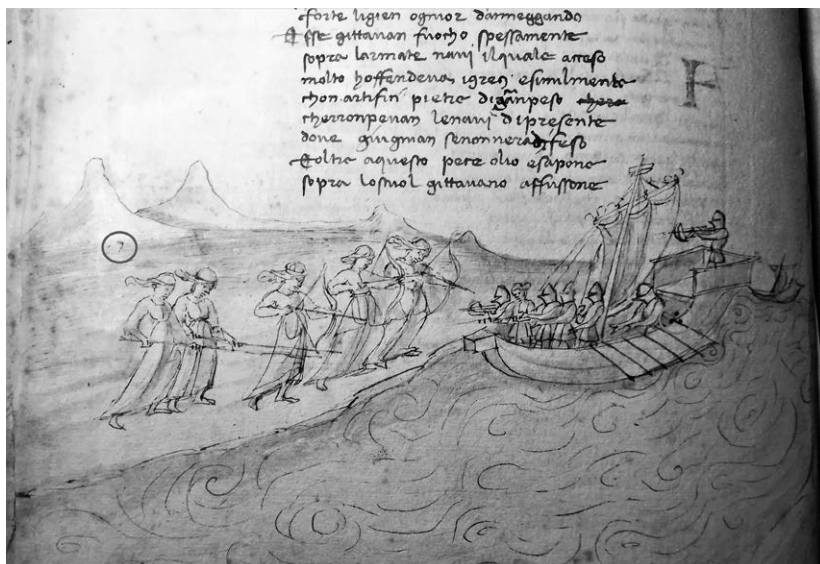 forte ligien ognior danneggando
Esse gittavan fuocho spessamente
sopra larmate navi ilquale acceso
molto hoffendeva igreci esimilmente
chon artifici pietre digranpeso
cherronpevan lenavi dipresente
dove giugnian senonneradifeso
Eoltre aquesto pece olio esapone
sopra lostuol gittavano affusone
F
7